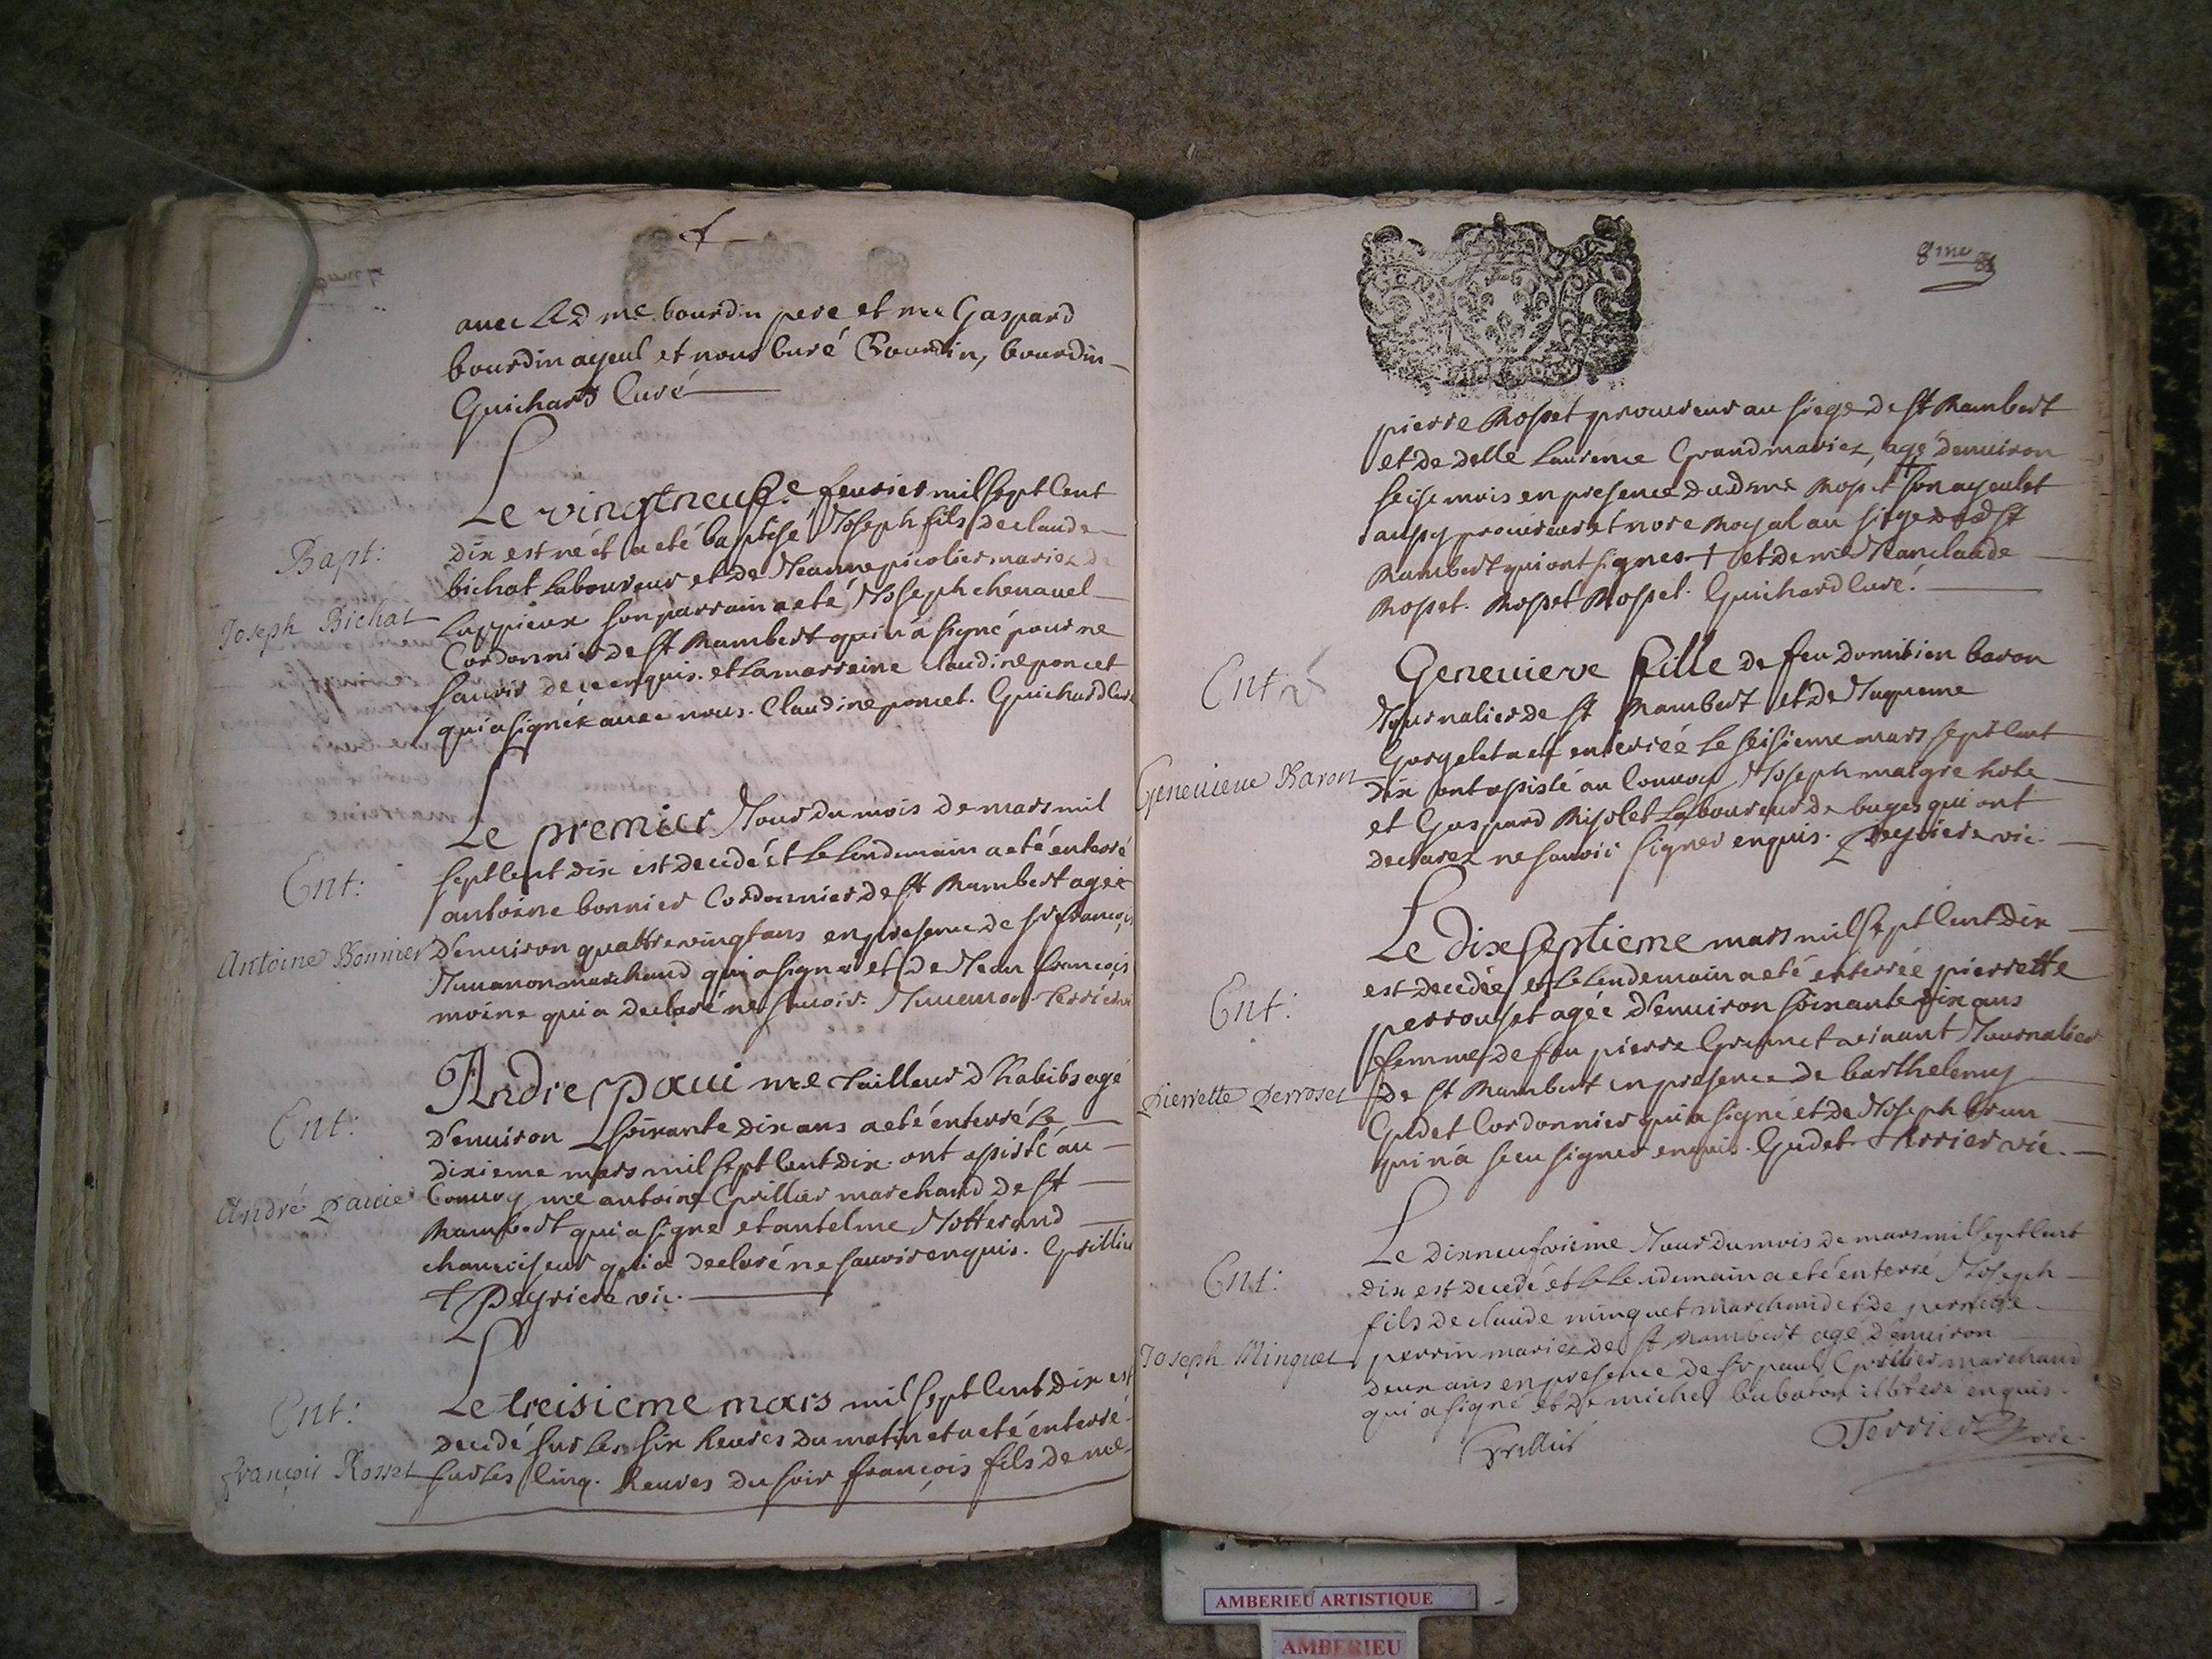 avec led me bourdin pere et me Gaspard
bourdin ayeul et nous Curé Bourdin, bourdin
Guichard Curé
Bapt:
Joseph Bichat
Le vingtneufe feurier mil sept Cent
dix est né et a eté baptisé Joseph fils de claude
bichat Laboureur et de Jeanne picolier mariez de
Luppieux son parrain a eté Joseph chenavel
Cordonnier de st Rambert qui n'a signé pour ne
savoir de ce enquis. et la marraine claudine poncet
qui a signéz avec nous. Claudine poncet. Guichard Curé
Ent:
Antoine Bonnier
Le premier Jour du mois de mars mil
sept Cent dix est decedé et le lendemain a eté enterré
antoine bonnier Cordonnier de st Rambert agée
d'enuiron quattrevingt ans en presence de sr françois
Juuanon marchand qui a signé et de Jean françois
moine qui a declaré ne sauoir. Juuanon Terrier vic
Ent:
André Pauie
Andre paui me tailleur d'habits agé
d'enuiron soixante dix ans a eté enterré le
dixieme mars mil sept Cent dix. ont assisté au
Conuoy me antoine Grillier marchand de st
Rambert qui a signé et antelme Jotterand
chanuiseur qui a declaré ne sauoir enquis. Grillier
Peysiere vic.
Ent:
françois Rosset
Le treisieme mars mil sept Cent dix est
decedé sur les six heures du matin et a eté enterré
sur les Cinq. heures du soir françois fils de me
8me
pierre Rosset procureur au siege de st Rambert
et de delle Laurence Grand mariez, agé d'enuiron
seise mois en presence dudme Rosset son ayeul et
aussy procureur et nore Royal au siege de st
Rambert qui ont signes + et de me Jean claude
Rosset. Rosset Rosset. Guichard Curé.
Ent:
Geneuieue Baron
Geneuieve fille de feu domitien baron
Journalier de st Rambert et de Jaqueme
Gorgelet a eté enterrée le seisieme mars sept Cent
dix ont assisté au Conuoy Joseph maigre hote
et Gaspard Rijolet Laboureur de buges qui ont
declarez ne sauoir signer enquis. Peysiere vic.
Ent:
Pierrette Perroset
Le dixseptieme mars mil sept Cent dix
est decedée et le lendemain a eté enterrée pierrette
perrouset agée d'enuiron soixante dix ans
femme de feu pierre Grumet viuant Journalier
de st Rambert en presence de barthelemy
Gudet Cordonnier qui a signé et de Joseph brun
qui n'a sceu signer enquis. Gudet. Terrier vic.
Ent:
Joseph Minguet
Le dixneufvieme Jour du mois de mars mil sept Cent
dix est decedé et le lendemain a eté enterré Joseph
fils de claude minguet marchand et de pernette
perrin mariez de st Rambert agé d'enuiron
deux ans en presence de sr paul Grillier marchand
qui a signé et de michel bubaton illiteré enquis.
Grillier
Terrier vic.
AMBERIEU ARTISTIQUE
AMBERIEU